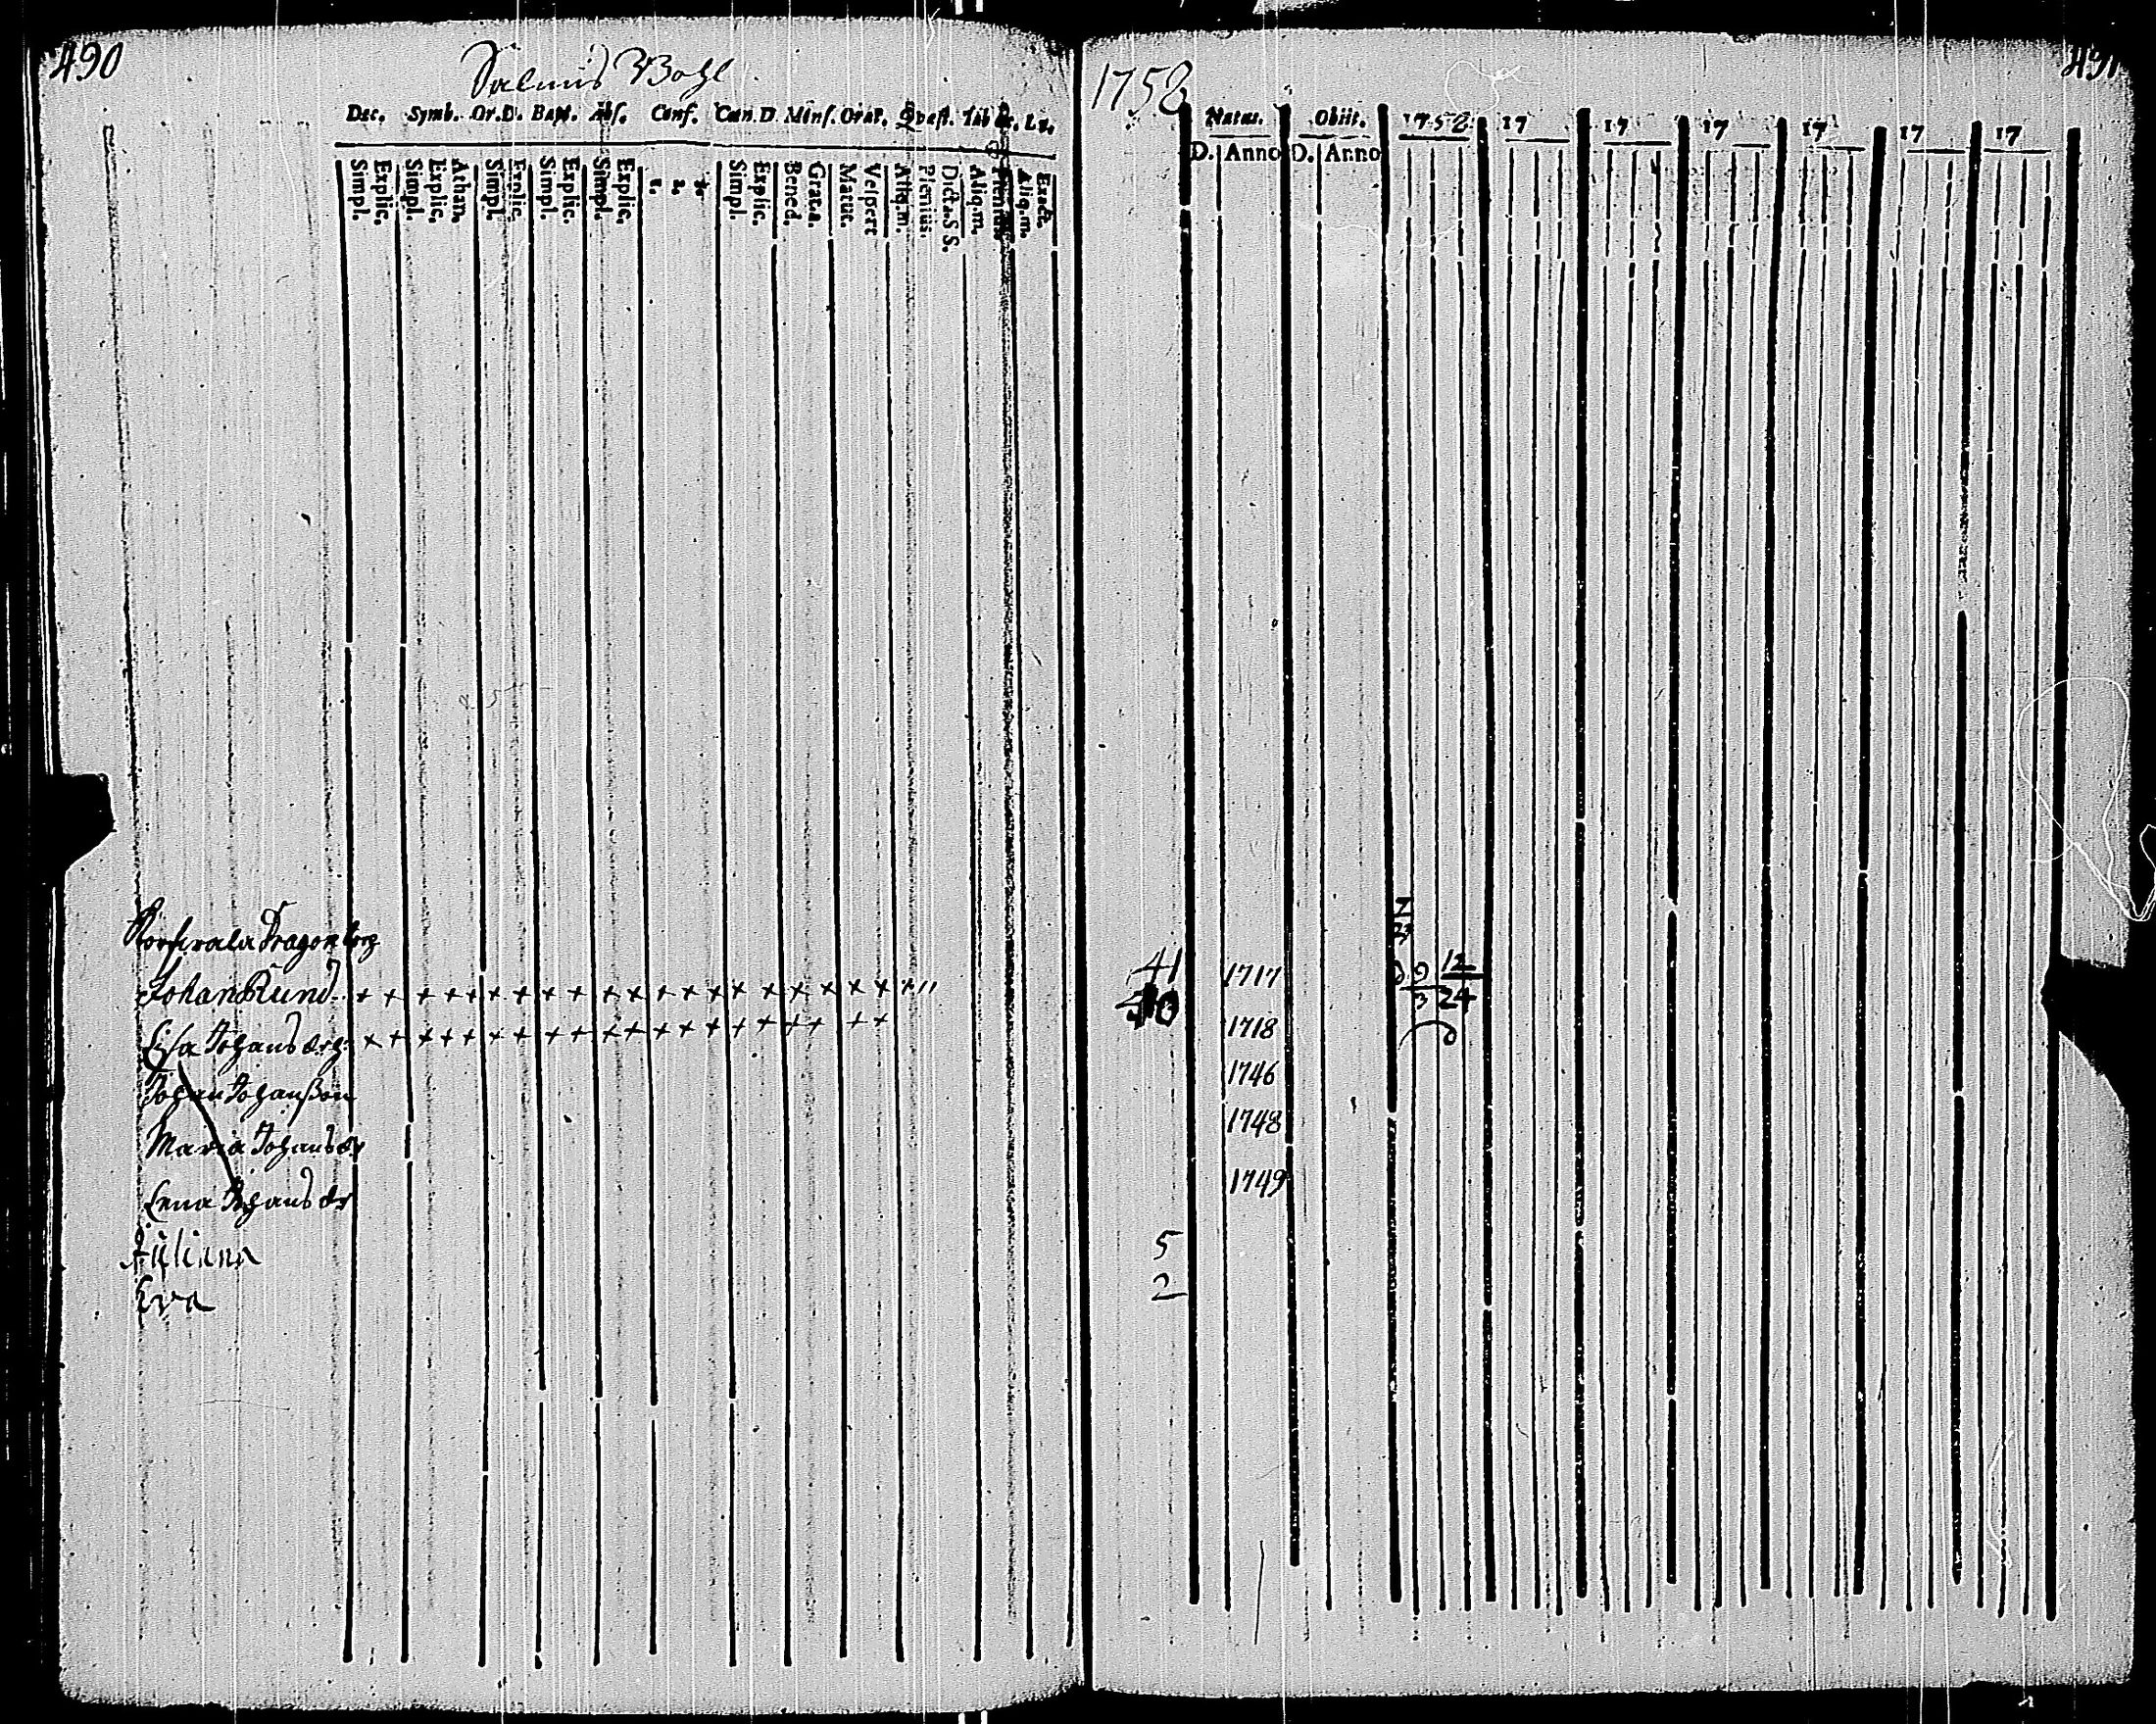 490
Salmis Bohl
Dec. Symb. Or.D. Bapt. Abs. Conf. Cœn.D. Mens. Orat. Qvæst. Tab. Lu.
Simpl. Explic. Simpl. Explic. Athan. Simpl. Explic. Simpl. Explic. Simpl. Explic. 1. 2. 3. Simpl. Explic. Bened. Grat.a. Matut. Vespert Aliq.m. Pleniùs. Dicta S S. Aliq.m. Aliq.m. Exact.
Johan Rund + + + + + + + + + + + + + + + + + + + + +
Lisa Johansdr + + + + + + + + + + + + + + + + + + + +
Johan Johanßon
Maria Johansdr
Lena Johansdr
Juliana
Eva
1752
491
Natus. Obiit. 1752 17 17 17 17 17 17
D. Anno D. Anno
41 1717 9 12
3 24
40 1718
1746
1748
1749
5
2